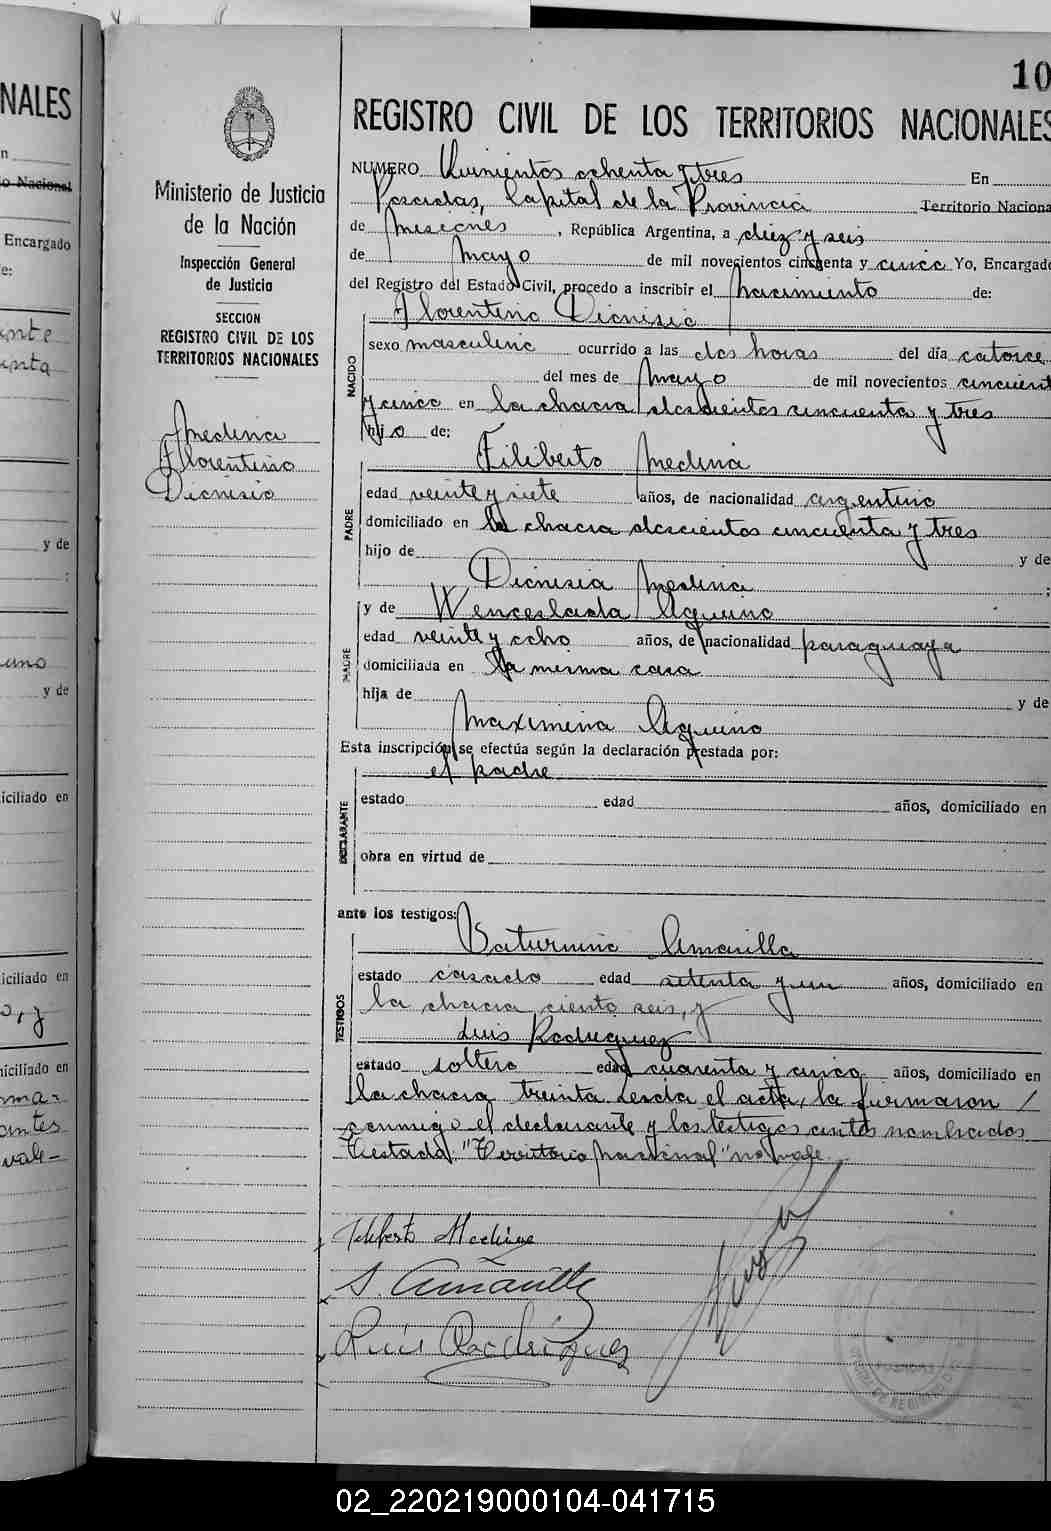 10
NALES
n
o Nacional
Encargado
e:
ante
enta
y de
:
uno
y de
iciliado en
iciliado en
o, y
iciliado en
antes
vale-
Ministerio de Justicia
de la Nación
Inspección General
de Justicia
SECCION
REGISTRO CIVIL DE LOS
TERRITORIOS NACIONALES
Medina
Florentino
Dionisio
REGISTRO CIVIL DE LOS TERRITORIOS NACIONALES
NUMERO Quinientos ochenta y tres En
Posadas, Capital de la Provincia Territorio Naciona
de Misiones, República Argentina, a diez y seis
de mayo de mil novecientos cincuenta y cinco Yo, Encargado
del Registro del Estado Civil, procedo a inscribir el nacimiento de:
Florentino Dionisio
NACIDO
sexo masculino ocurrido a las dos horas del día catorce
del mes de Mayo de mil novecientos cincuent
y cinco en la chacra doscientos cincuenta y tres
hijo de:
PADRE
Filiberto Medina
edad veinte y siete años, de nacionalidad argentino
domiciliado en la chacra doscientos cincuenta y tres
hijo de y de
Dionisia Medina ;
MADRE
y de Wenceslada Aquino
edad veinte y ocho años, de nacionalidad paraguaya
domiciliada en la misma casa
hija de y de
Maximina Aquino
Esta inscripción se efectúa según la declaración prestada por:
el padre
DECLARANTE
estado edad años, domiciliado en
obra en virtud de
ante los testigos:
TESTIGOS
Saturnino Amarilla
estado casado edad setenta y un años, domiciliado en
la chacra ciento seis, y
Luis Rodriguez
estado soltero edad cuarenta y cinco años, domiciliado en
la chacra treinta. Leida el acta, la firmaron /
conmigo el declarante y los testigos antes nombrados
Testado: "Territorio Nacional" no vale.
Filiberto Medina
S. Amarilla
Luis Rodriguez
POSADAS
02_220219000104-041715